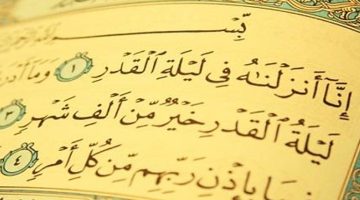 بِسْ
إِنَّا أَنزَلْنَاهُ فِي لَيْلَةِ الْقَدْرِ ١ وَمَا أَدْرَ
لَيْلَةُ الْقَدْرِ خَيْرٌ مِّنْ أَلْفِ شَهْرٍ ٣
بِإِذْنِ رَبِّهِم مِّن كُلِّ أَمْرٍ ٤